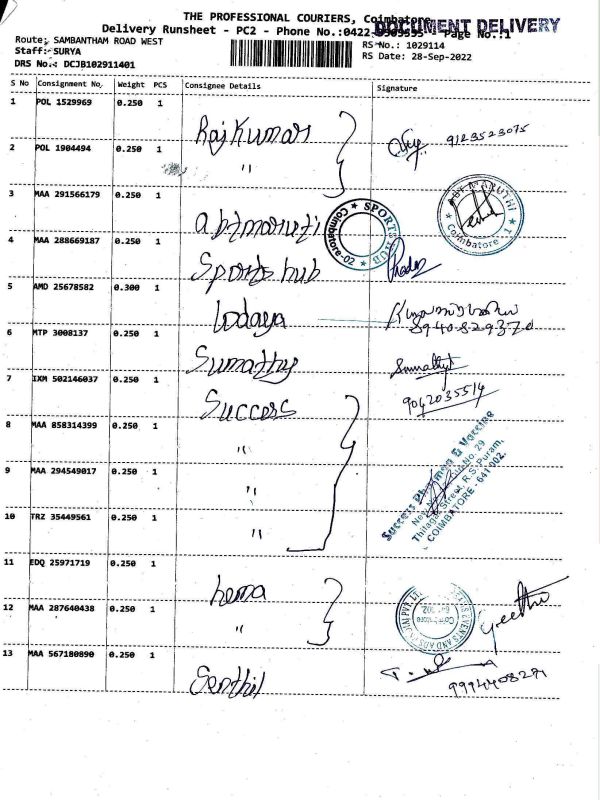 THE PROFESSIONAL COURIERS, Coimbatore
DOCUMENT DELIVERY
Delivery Runsheet - PC2 - Phone No.:0422 - Page No.:1
Route: SAMBANTHAM ROAD WEST
RS No.: 1029114
Staff: SURYA
RS Date: 28-Sep-2022
DRS No.: DCJB102911401
S No Consignment No. Weight PCS Consignee Details Signature
1 POL 1529969 0.250 1 Rajkumar
9123523075
2 POL 1904494 0.250 1 "
3 MAA 291566179 0.250 1 abtmaruti
MARUTHI
Coimbatore - 1
4 MAA 288669187 0.250 1 Sports hub
SPORTS HUB
Coimbatore-02
5 AMD 25678582 0.300 1 Lodaya
8940829370
6 MTP 3008137 0.250 1 Sumathy
Sumathy
7 IXM 502146037 0.250 1 Success
9042035514
8 MAA 858314399 0.250 1 "
9 MAA 294549017 0.250 1 "
10 TRZ 35449561 0.250 1 "
Success & Vaccine
No. 29
Thilagar Street, R.S.Puram,
COIMBATORE - 641 002.
11 EDQ 25971719 0.250 1 hema
12 MAA 287640438 0.250 1 "
EVENTS AND
Geetha
13 MAA 567180890 0.250 1 Senthil
9994408271